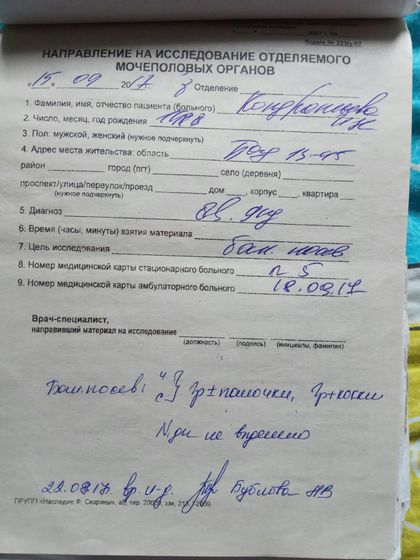 Форма № 223/у-07
НАПРАВЛЕНИЕ НА ИССЛЕДОВАНИЕ ОТДЕЛЯЕМОГО
МОЧЕПОЛОВЫХ ОРГАНОВ
« 15 » 09 2017 г. Отделение
1. Фамилия, имя, отчество пациента (больного)
2. Число, месяц, год рождения 1988
3. Пол: мужской, женский (нужное подчеркнуть)
4. Адрес места жительства: область
район город (пгт) село (деревня)
проспект/улица/переулок/проезд дом , корпус , квартира
(нужное подчеркнуть)
5. Диагноз
6. Время (часы, минуты) взятия материала
7. Цель исследования бак. посев
8. Номер медицинской карты стационарного больного n 5
9. Номер медицинской карты амбулаторного больного 18.09.17
Врач-специалист,
направивший материал на исследование
(должность) (подпись) (инициалы, фамилия)
Бак. посев: гр±палочки, гр+кокки
N. gn не выделено
22.09.17г.